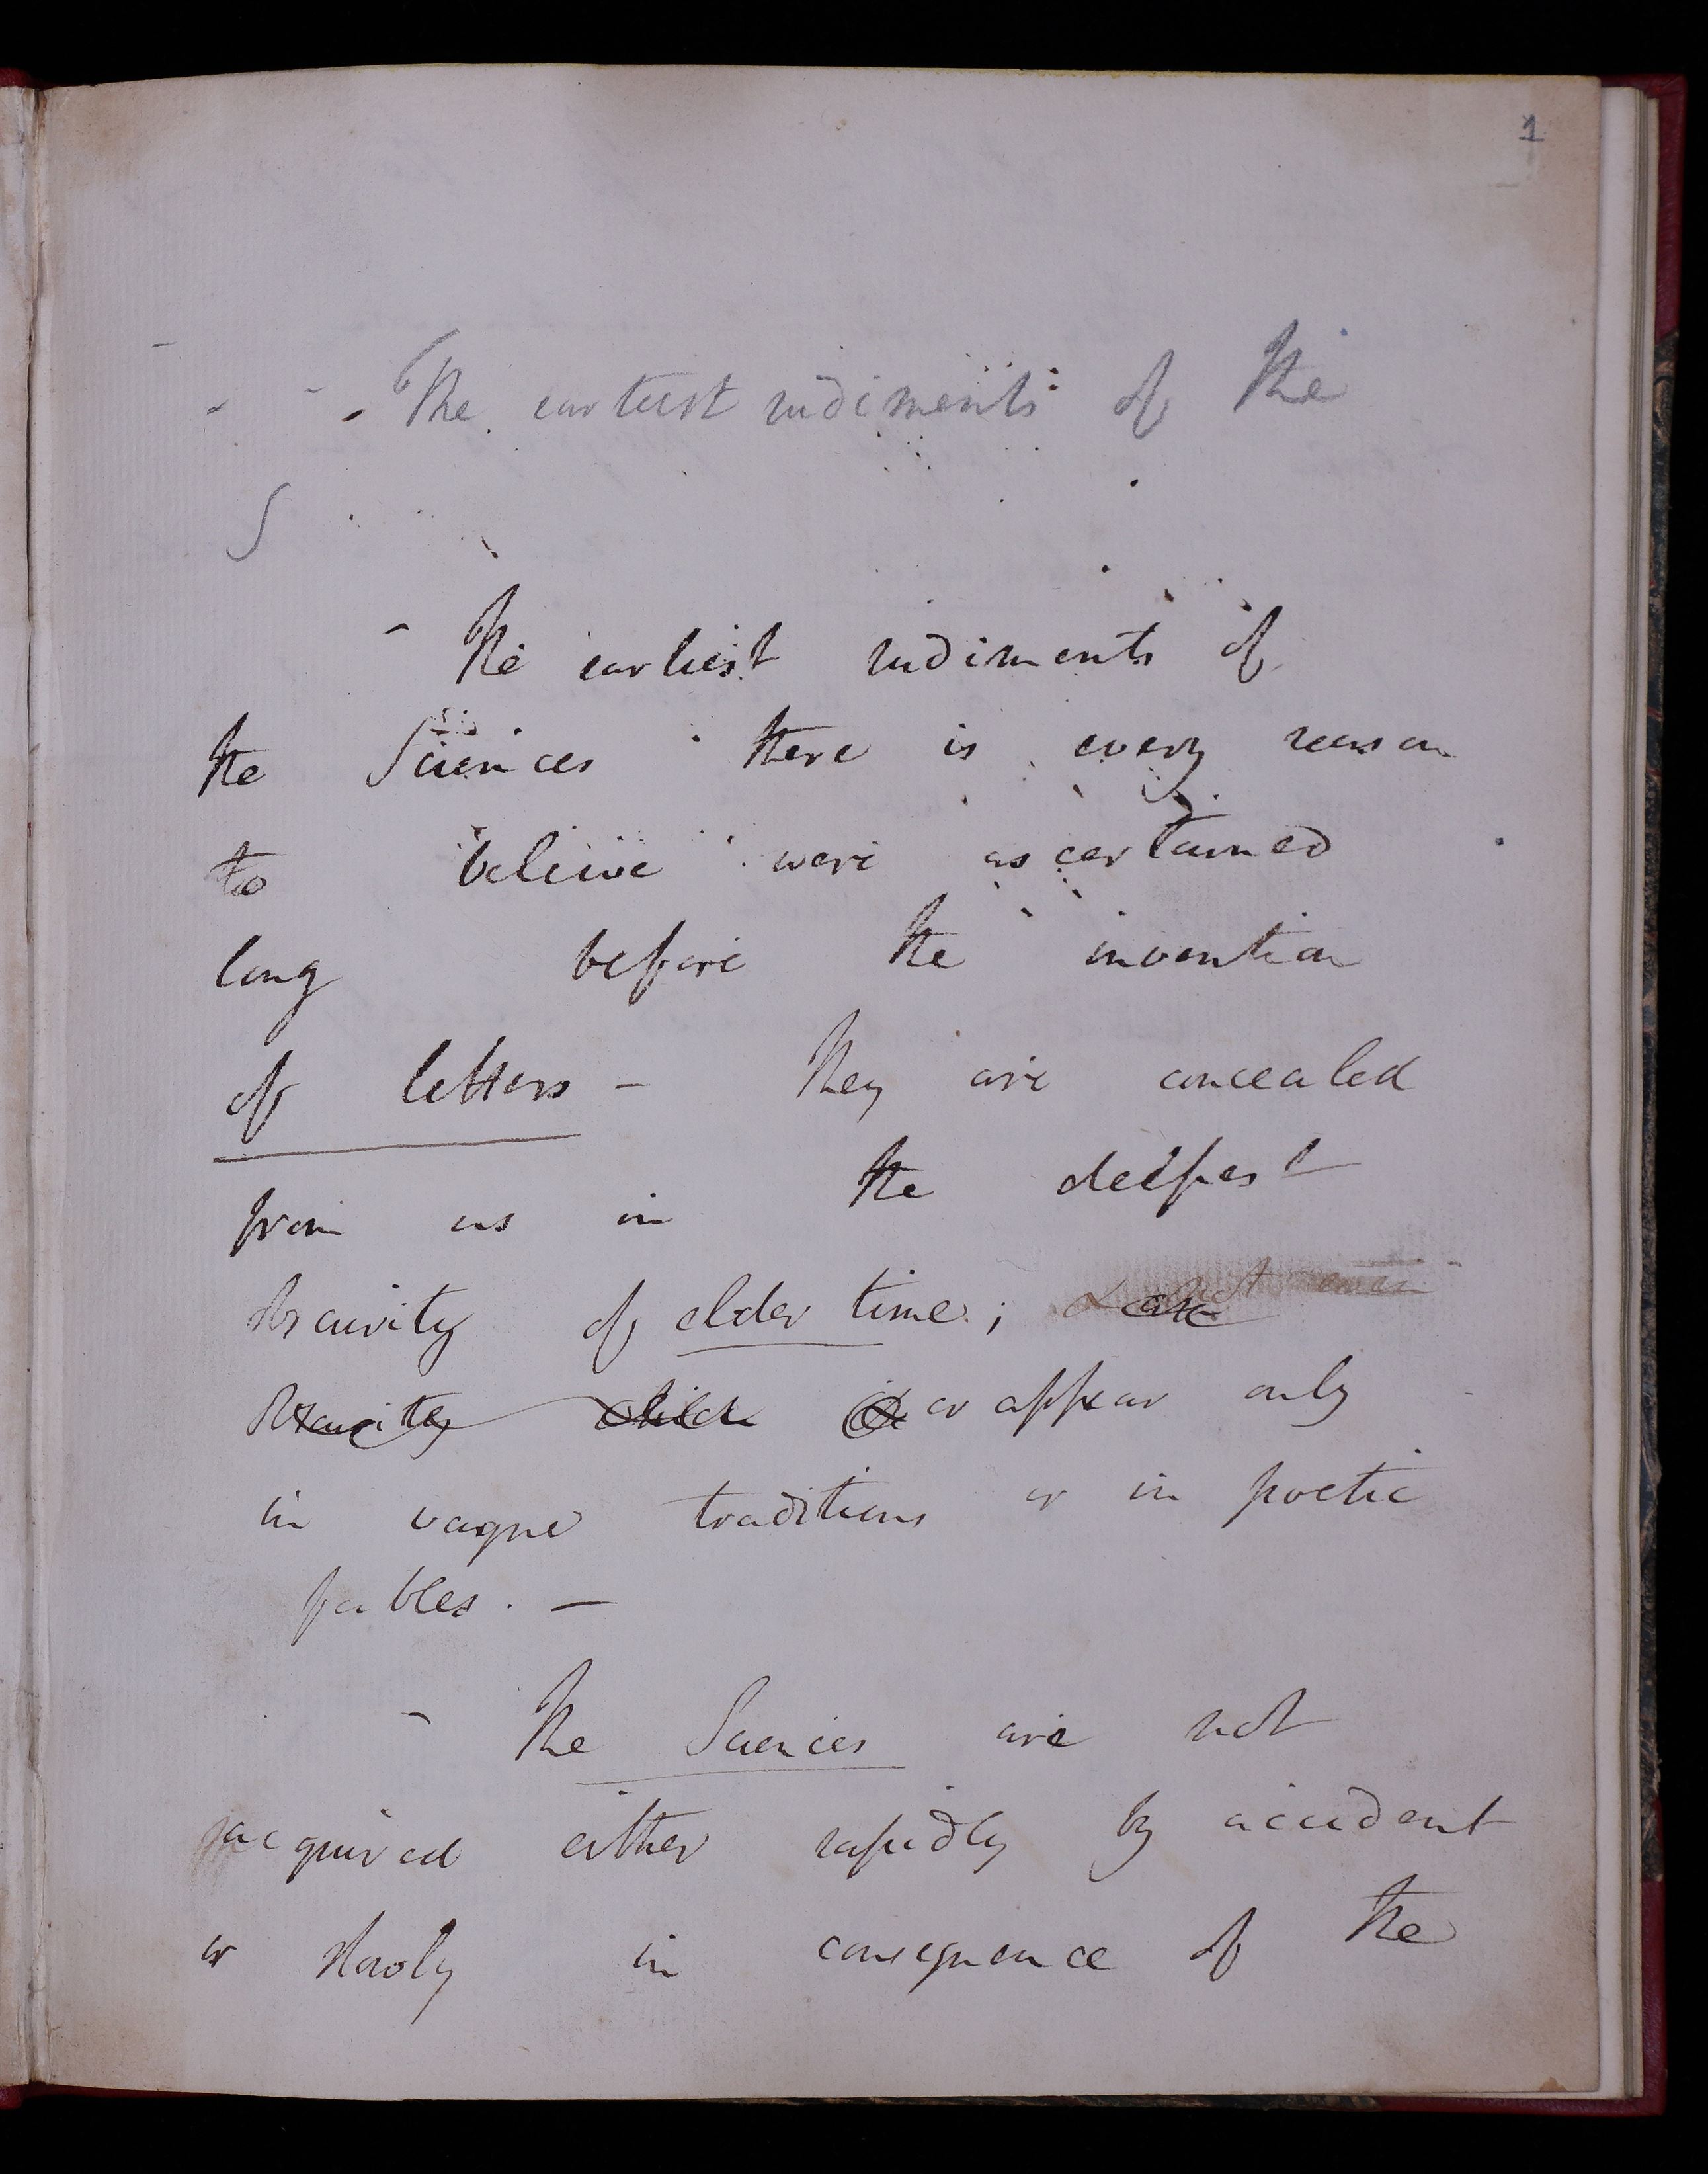 1
- The earliest rudiments of the
S
- The earliest rudiments of
the Sciences there is every reason
to believe were ascertained
long before the invention
of letters - They are concealed
from us in the deepest
obscurity of elder time; &
obscurity which or appear only
in vague traditions or in poetic
fables. -
- The Sciences are not
acquired either rapidly by accident
or slowly in consequence of the